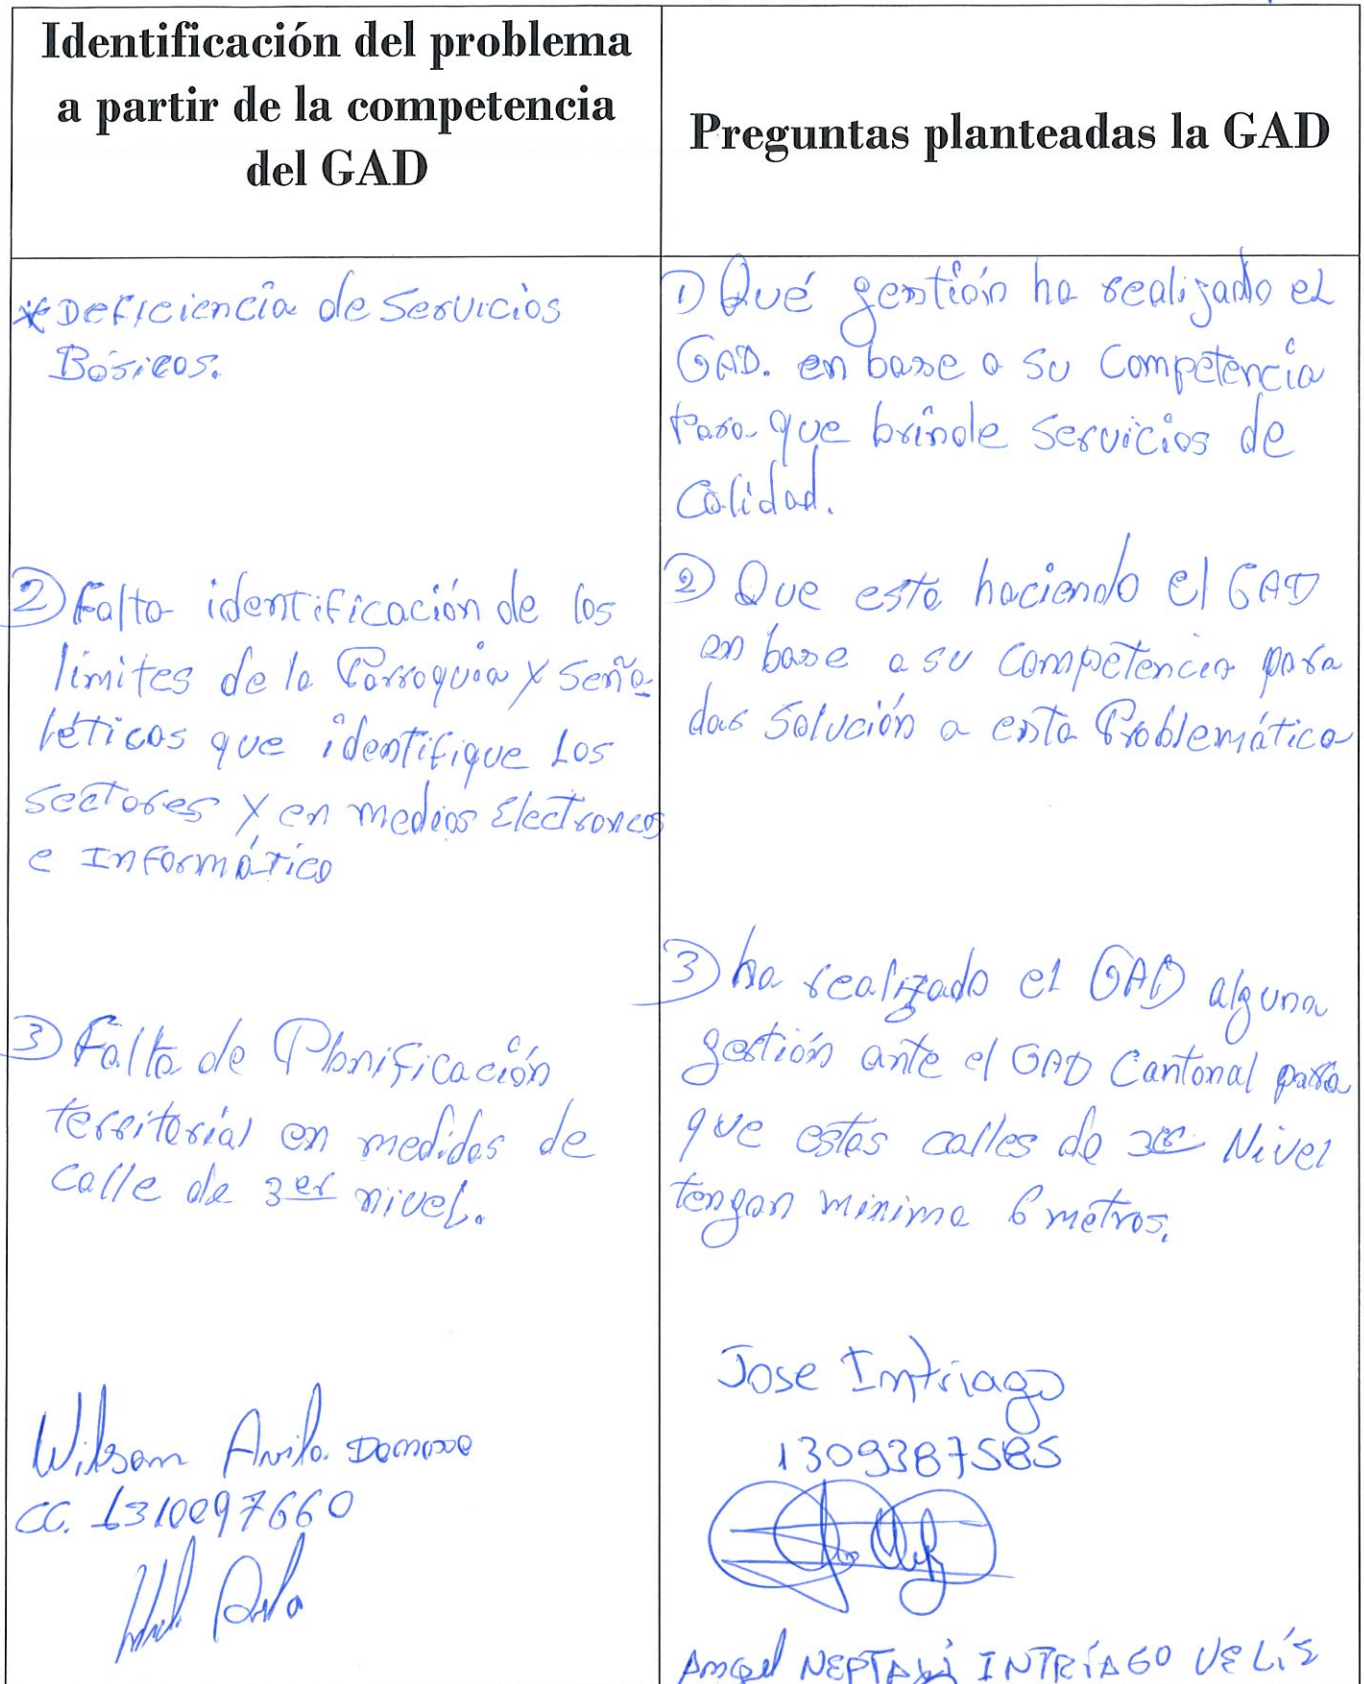 Identificación del problema
a partir de la competencia
del GAD
Preguntas planteadas la GAD
* Deficiencia de Servicios
Básicos.
1) Qué gestión ha realizado el
GAD. en base a su Competencia
Para que brinde Servicios de
Calidad.
2) Falta identificación de los
límites de la Parroquia y Seña
léticas que identifique Los
sectores y en medios Electronicos
e Informático
2) Que esta haciendo el GAD
en base a su Competencia para
dar Solución a esta Problemática
3) Falta de Planificación
territorial en medidas de
calle de 3er nivel.
3) ha realizado el GAD alguna
gestión ante el GAD Cantonal para
que estas calles de 3er Nivel
tengan minimo 6 metros.
Wilson Avila
CC. 1310097660
Jose Intriago
1309387585
Angel NEPTALÍ INTRÍAGO VELÍZ